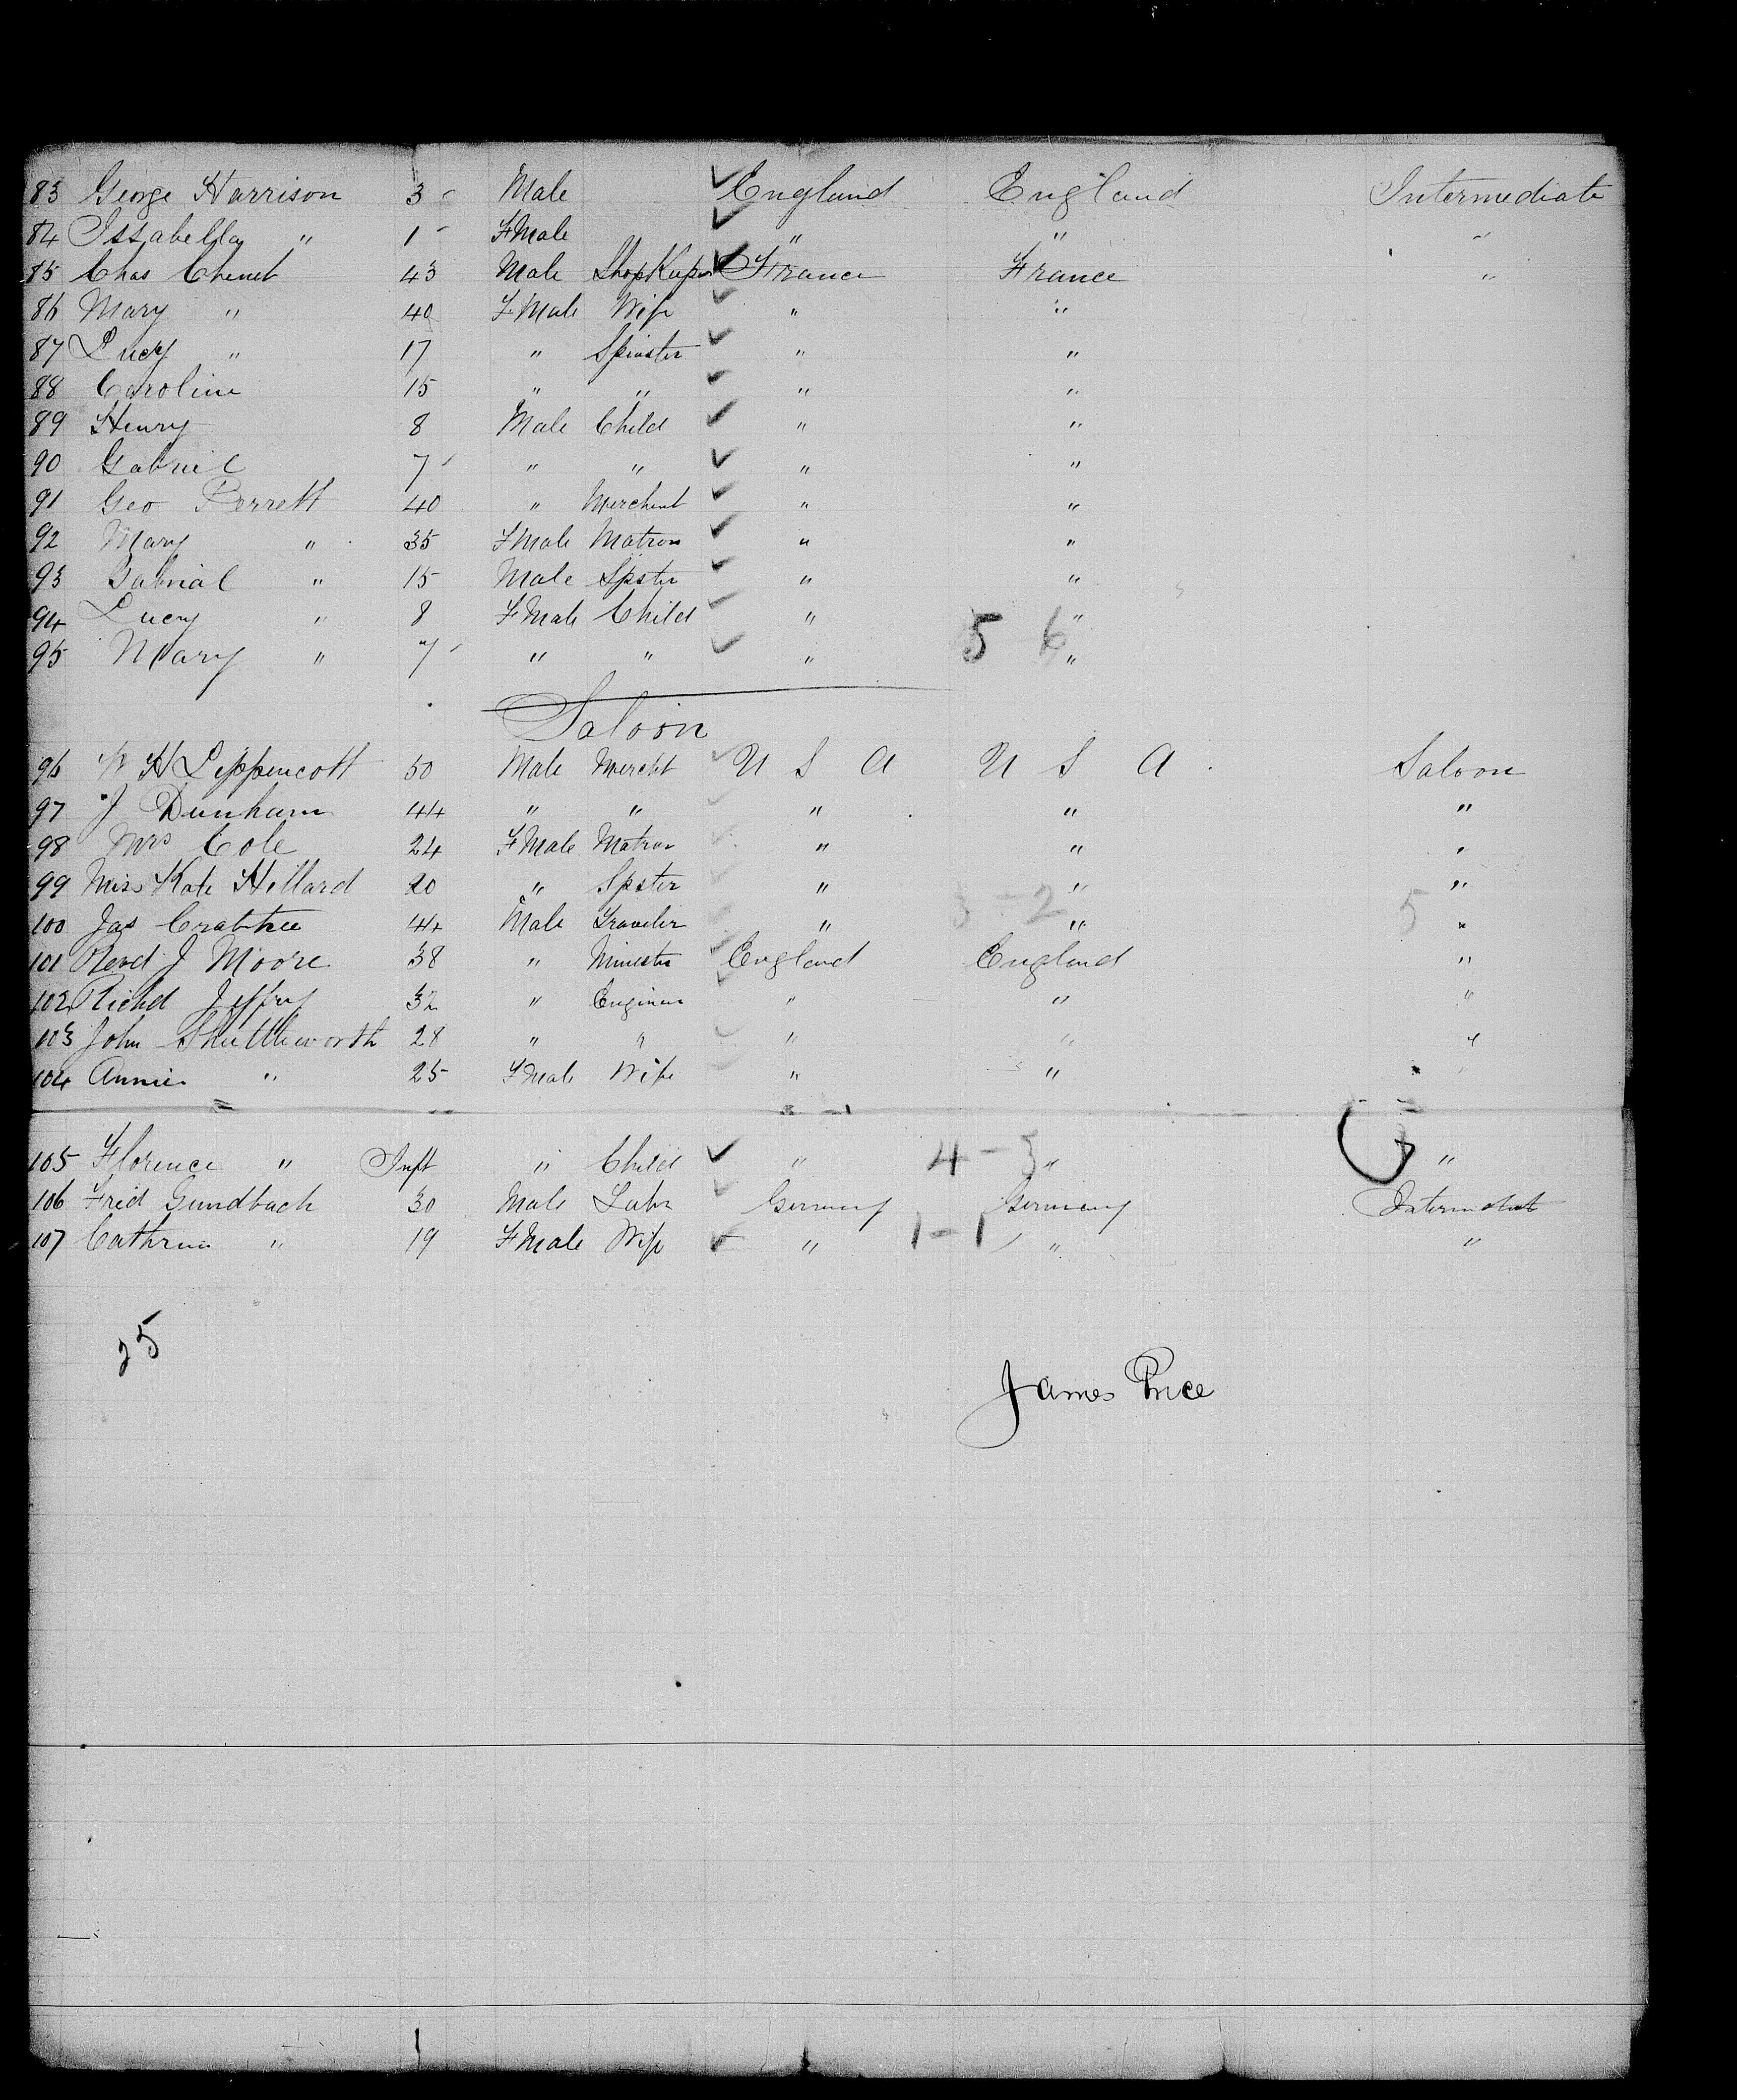 83 George Harrison 3 - Male England England Intermediate
84 Issabella " 1 - FMale " " "
85 Chas Chenet 43 Male ShopKeeper France France "
86 Mary " 40 FMale Wife " "
87 Lucy " 17 " Spinster " "
88 Caroline 15 " " " "
89 Henry 8 Male Child " "
90 Gabriel 7 " " " "
91 Geo Perrett 40 " Merchent " "
92 Mary " 35 FMale Matron " "
93 Gabrial " 15 Male Spster " "
94 Lucy " 8 FMale Child " "
5 6
95 Mary " 7 " " " "
Saloon
96 W H Lippencott 50 Male Mercht U S A U S A Saloon
97 J Dunham 44 " " " " "
98 Mrs Cole 24 FMale Matron " " "
99 Miss Kate Hillard 20 " Spster " " "
3 - 2 5
100 Jas Crabtree 44 Male Traveler " " "
101 Revd J Moore 38 " Minester England England "
102 Richd Jeffry 32 " Engineer " " "
103 John Shuttleworth 28 " " " " "
104 Annie " 25 FMale Wife " "
105 Florence " Inft " Child " 4 - 5 " "
106 Fred Gundbach 30 Male Labr Germany Germany Intermediat
107 Cathrine " 19 FMale Wife " 1 - 1 " "
25
James Price